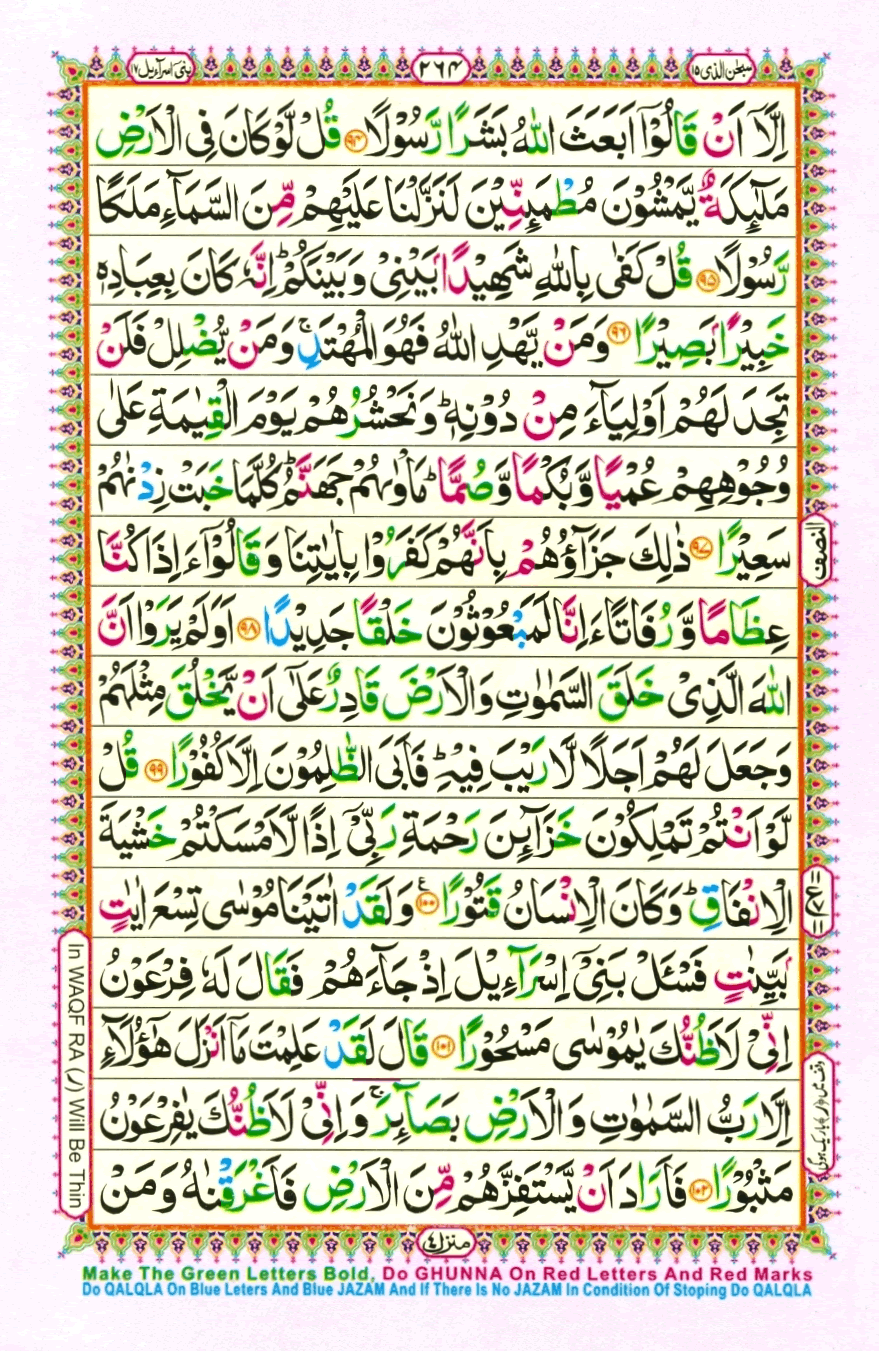 سبحن الذی ۱۵
۲۶۴
بنی اسراءیل ۱۷
اِلَّاۤ اَنْ قَالُوْۤا اَبَعَثَ اللّٰهُ بَشَرًا رَّسُوْلًا ﴿۹۴﴾ قُلْ لَّوْ كَانَ فِی الْاَرْضِ
مَلٰٓىِٕكَةٌ یَّمْشُوْنَ مُطْمَىِٕنِّیْنَ لَنَزَّلْنَا عَلَیْهِمْ مِّنَ السَّمَآءِ مَلَكًا
رَّسُوْلًا ﴿۹۵﴾ قُلْ كَفٰی بِاللّٰهِ شَهِیْدًۢا بَیْنِیْ وَ بَیْنَكُمْ ؕ اِنَّهٗ كَانَ بِعِبَادِهٖ
خَبِیْرًۢا بَصِیْرًا ﴿۹۶﴾ وَ مَنْ یَّهْدِ اللّٰهُ فَهُوَ الْمُهْتَدِ ۚ وَ مَنْ یُّضْلِلْ فَلَنْ
تَجِدَ لَهُمْ اَوْلِیَآءَ مِنْ دُوْنِهٖ ؕ وَ نَحْشُرُهُمْ یَوْمَ الْقِیٰمَةِ عَلٰی
وُجُوْهِهِمْ عُمْیًا وَّ بُكْمًا وَّ صُمًّا ؕ مَاْوٰىهُمْ جَهَنَّمُ ؕ كُلَّمَا خَبَتْ زِدْنٰهُمْ
سَعِیْرًا ﴿۹۷﴾ ذٰلِكَ جَزَآؤُهُمْ بِاَنَّهُمْ كَفَرُوْا بِاٰیٰتِنَا وَ قَالُوْۤا ءَاِذَا كُنَّا
النصف
عِظَامًا وَّ رُفَاتًا ءَاِنَّا لَمَبْعُوْثُوْنَ خَلْقًا جَدِیْدًا ﴿۹۸﴾ اَوَ لَمْ یَرَوْا اَنَّ
اللّٰهَ الَّذِیْ خَلَقَ السَّمٰوٰتِ وَ الْاَرْضَ قَادِرٌ عَلٰۤی اَنْ یَّخْلُقَ مِثْلَهُمْ
وَ جَعَلَ لَهُمْ اَجَلًا لَّا رَیْبَ فِیْهِ ؕ فَاَبَی الظّٰلِمُوْنَ اِلَّا كُفُوْرًا ﴿۹۹﴾ قُلْ
لَّوْ اَنْتُمْ تَمْلِكُوْنَ خَزَآىِٕنَ رَحْمَةِ رَبِّیْۤ اِذًا لَّاَمْسَكْتُمْ خَشْیَةَ
الْاِنْفَاقِ ؕ وَ كَانَ الْاِنْسَانُ قَتُوْرًا ﴿۱۰۰﴾ ع وَ لَقَدْ اٰتَیْنَا مُوْسٰی تِسْعَ اٰیٰتٍۭ
بَیِّنٰتٍ فَسْـَٔلْ بَنِیْۤ اِسْرَآءِیْلَ اِذْ جَآءَهُمْ فَقَالَ لَهٗ فِرْعَوْنُ
اِنِّیْ لَاَظُنُّكَ یٰمُوْسٰی مَسْحُوْرًا ﴿۱۰۱﴾ قَالَ لَقَدْ عَلِمْتَ مَاۤ اَنْزَلَ هٰۤؤُلَآءِ
اِلَّا رَبُّ السَّمٰوٰتِ وَ الْاَرْضِ بَصَآىِٕرَ ۚ وَ اِنِّیْ لَاَظُنُّكَ یٰفِرْعَوْنُ
مَثْبُوْرًا ﴿۱۰۲﴾ فَاَرَادَ اَنْ یَّسْتَفِزَّهُمْ مِّنَ الْاَرْضِ فَاَغْرَقْنٰهُ وَ مَنْ
وقف میں (ر) باریک ہوگی
In WAQF RA (ر) Will Be Thin
منزل ٤
Make The Green Letters Bold, Do GHUNNA On Red Letters And Red Marks
Do QALQLA On Blue Leters And Blue JAZAM And If There Is No JAZAM In Condition Of Stoping Do QALQLA